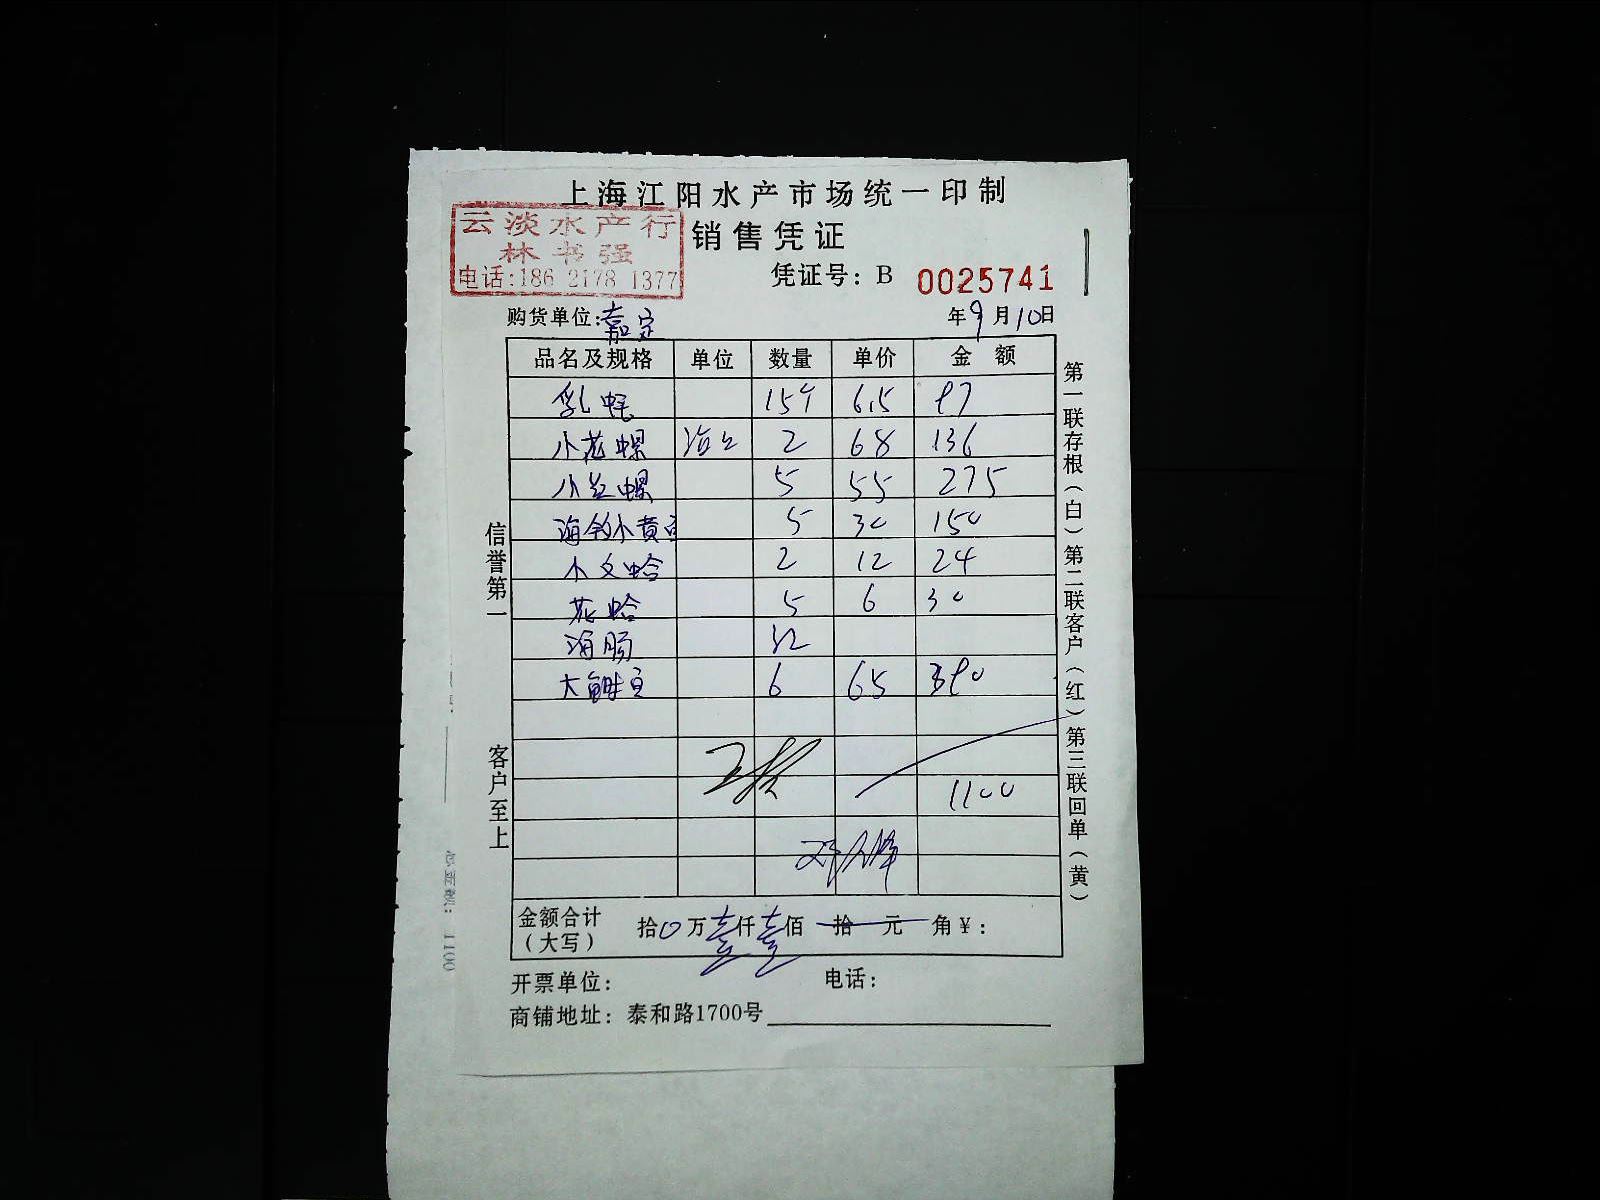 上海江阳水产市场统一印制
云淡水产行
林书强
电话:186 2178 1377
销售凭证
凭证号: B 0025741
购货单位:嘉定 年9月10日
品名及规格 单位 数量 单价 金额
乳蚝 15个 6.5 97
小花螺 2 68 136
小红螺 5 55 275
海钓小黄鱼 5 30 150
小文蛤 2 12 24
花蛤 5 6 30
海肠
大鲜鱼 6 65 390
1100
金额合计(大写) 拾0万壹仟壹佰拾元角¥:
开票单位: 电话:
商铺地址: 泰和路1700号
信誉第一 客户至上
第一联存根(白)第二联客户(红)第三联回单(黄)
1100